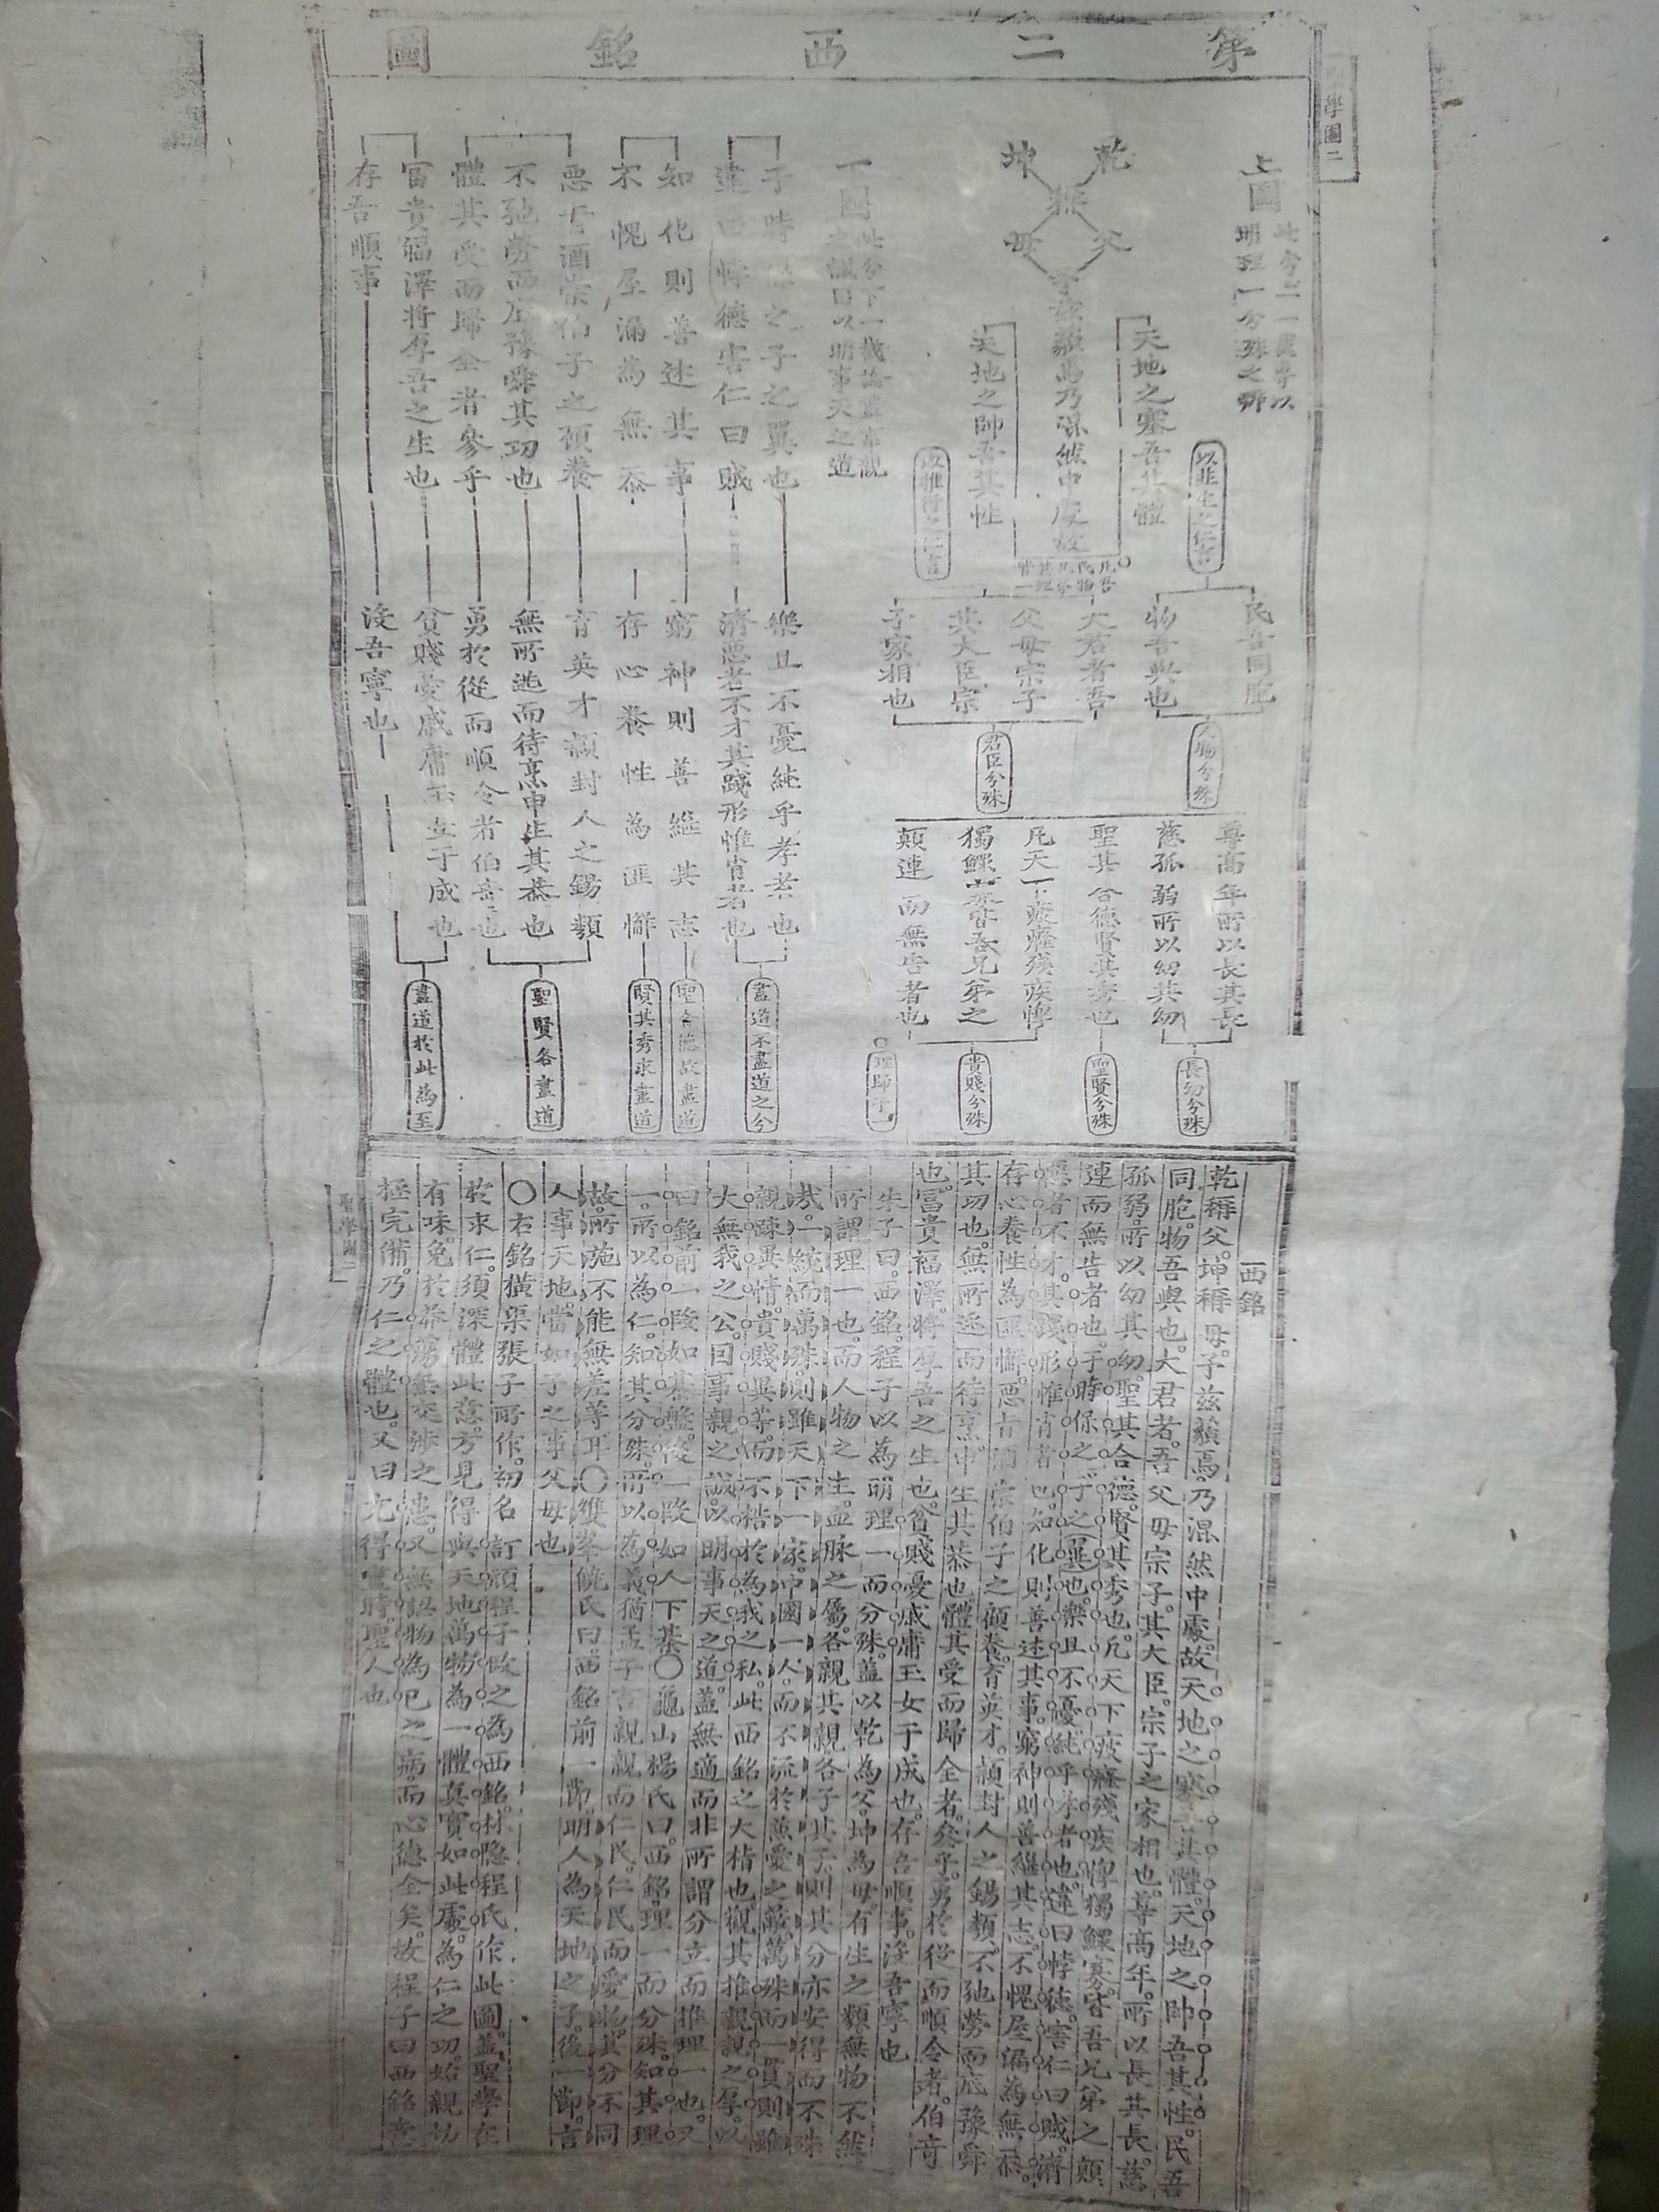 第二西銘圖
學圖二
上圖
此分上一截專以
明理一分殊之辨
乾
坤
稱
父
母
予茲藐焉乃混然中處故
天地之塞吾其體
天地之帥吾其性
民吾同胞
物吾與也
大君者吾
父母宗子
其大臣宗
子家相也
君臣分殊
尊高年所以長其長
慈孤弱所以幼其幼
聖其合德賢其秀也
凡天下疲癃殘疾惸
獨鰥寡皆吾兄弟之
顛連而無告者也
長幼分殊
聖賢分殊
貴賤分殊
理歸于一
下圖
此分下一截論盡事親
之誠因以明事天之道
于時保之子之翼也
樂且不憂純乎孝者也
違曰悖德害仁曰賊
濟惡者不才其踐形惟肖者也
盡道不盡道之分
知化則善述其事
窮神則善繼其志
聖合德故盡道
不愧屋漏為無忝
存心養性為匪懈
賢其秀求盡道
惡旨酒崇伯子之顧養
育英才穎封人之錫類
不弛勞而厎豫舜其功也
無所逃而待烹申生其恭也
聖賢各盡道
體其受而歸全者參乎
勇於從而順令者伯奇也
富貴福澤将厚吾之生也
貧賤憂戚庸玉女于成也
存吾順事
沒吾寧也
盡道於此為至
西銘
乾稱父坤稱母予茲藐焉乃混然中處故天地之塞吾其體天地之帥吾其性民吾
同胞物吾與也大君者吾父母宗子其大臣宗子之家相也尊高年所以長其長慈
孤弱所以幼其幼聖其合德賢其秀也凡天下疲癃殘疾惸獨鰥寡皆吾兄弟之顛
連而無告者也于時保之子之翼也樂且不憂純乎孝者也違曰悖德害仁曰賊濟
惡者不才其踐形惟肖者也知化則善述其事窮神則善繼其志不愧屋漏為無忝
存心養性為匪懈惡旨酒崇伯子之顧養育英才穎封人之錫類不弛勞而厎豫舜
其功也無所逃而待烹申生其恭也體其受而歸全者參乎勇於從而順令者伯奇
也富貴福澤将厚吾之生也貧賤憂戚庸玉女于成也存吾順事沒吾寧也
朱子曰西銘程子以為明理一而分殊蓋以乾為父坤為母有生之類無物不然
所謂理一也而人物之生血脉之屬各親其親各子其子則其分亦安得而不殊
哉一統而萬殊則雖天下一家中國一人而不流於兼愛之蔽萬殊而一貫則雖
親踈異情貴賤異等而不梏於為我之私此西銘之大㫖也觀其推親親之厚以
大無我之公因事親之誠以明事天之道蓋無適而非所謂分立而推理一也又
曰銘前一段如棊盤後一段如人下棊〇龜山楊氏曰西銘理一而分殊知其理
一所以為仁知其分殊所以為義猶孟子言親親而仁民仁民而愛物其分不同
故所施不能無差等耳〇雙峯饒氏曰西銘前一節明人為天地之子後一節言
人事天地當如子之事父母也
〇右銘橫渠張子所作初名訂頑程子改之為西銘林隱程氏作此圖蓋聖學在
於求仁須深體此意方見得與天地萬物為一體真實如此處為仁之功始親切
有味免於莽蕩無交涉之患又無認物為己之病而心德全矣故程子曰西銘意
極完備乃仁之體也又曰充得盡時聖人也
聖學圖二